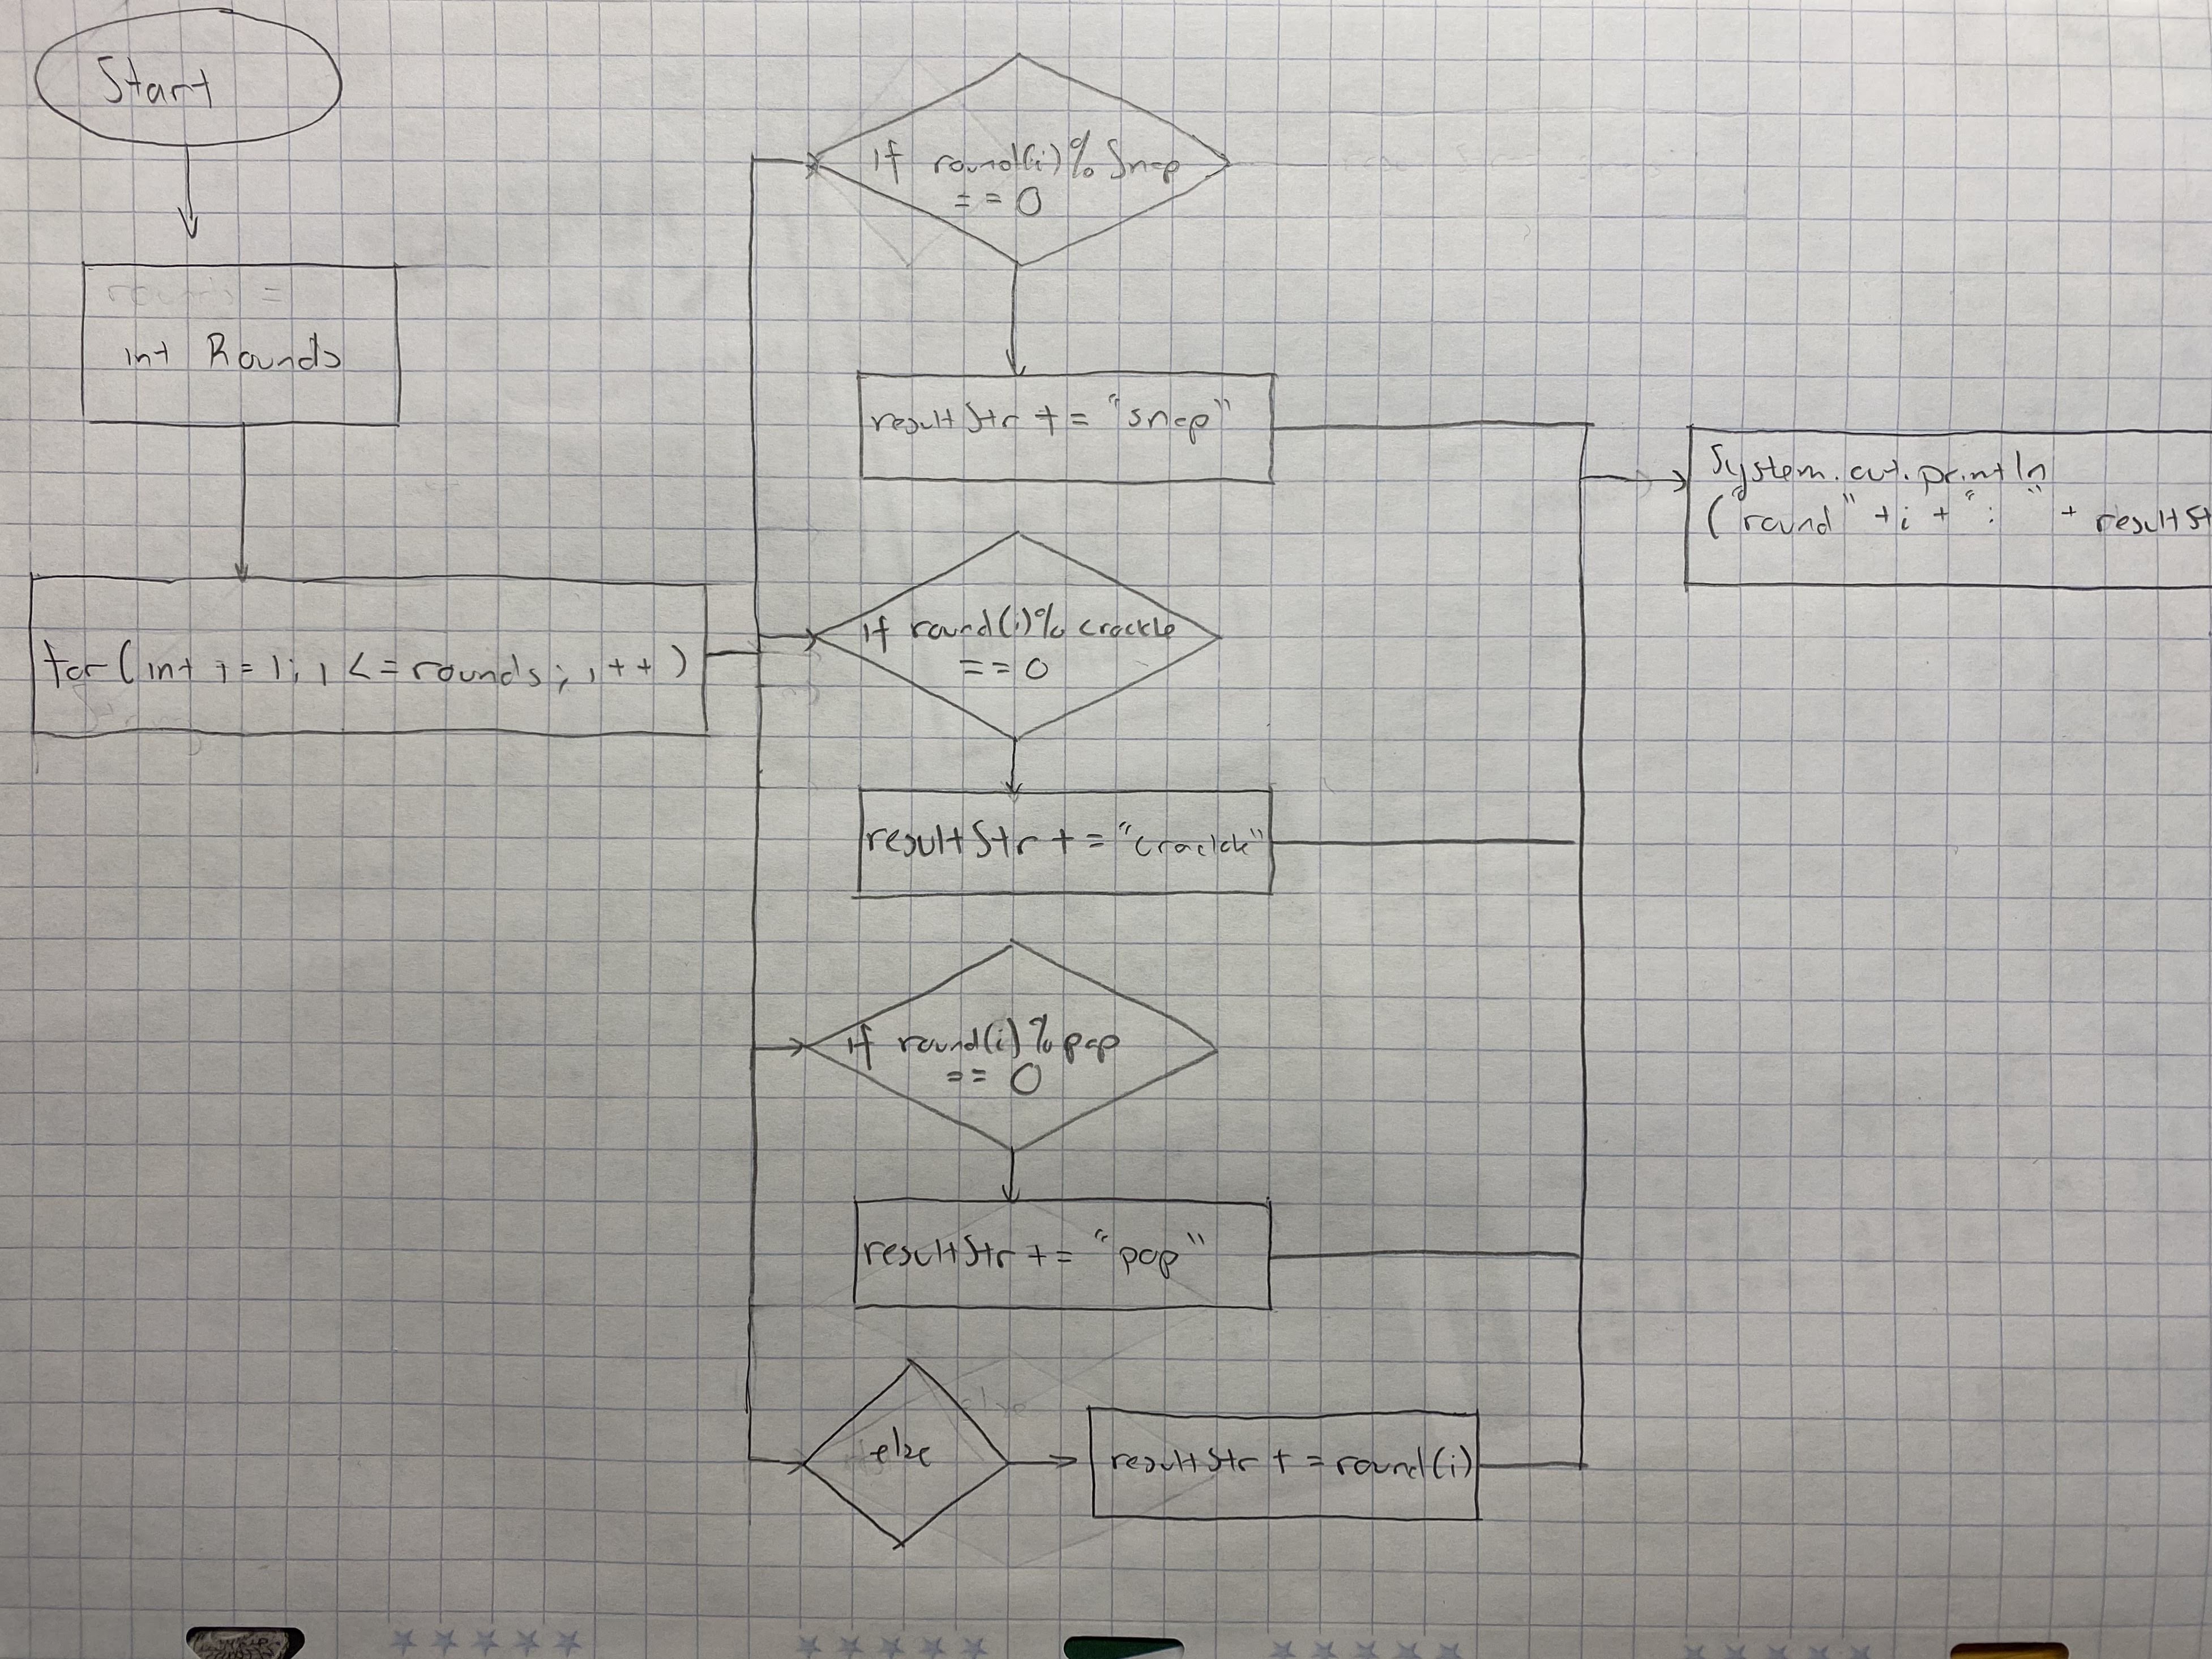 Start
int Rounds
for(int i=1; i <= rounds; i++)
if round(i)% Snap
== 0
resultStr += "snap"
if round(i)% crackle
== 0
resultStr += "crackle"
if round(i)% pop
== 0
resultStr += "pop"
else
resultStr += round(i)
System.out.println
("round" + i + ": " + resultSt